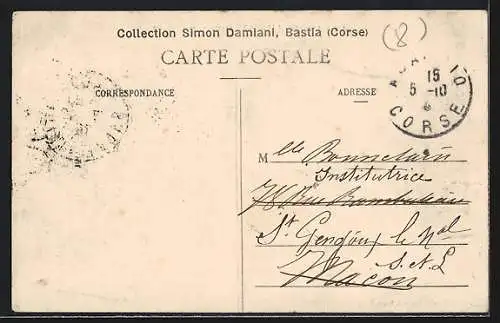 Collection Simon Damiani, Bastia (Corse)
(8)
CARTE POSTALE
CORRESPONDANCE
ADRESSE
15
5 -10
CORSE
Mlle
Institutrice
78 Rue Rambuteau
St Gengoux le Nal
S. et L
Macon